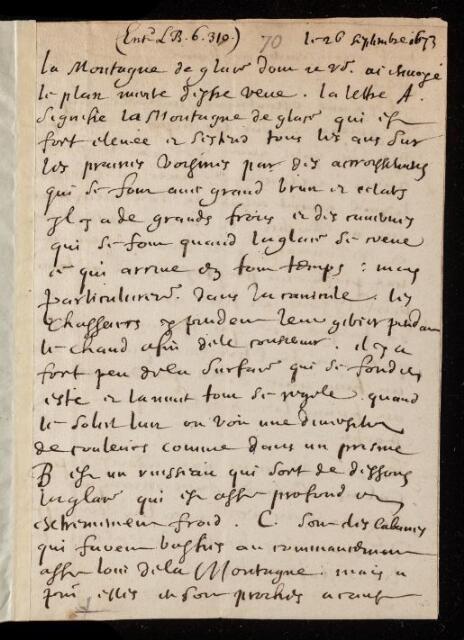 (Entd LB. 6. 319.) 70 le 26 septembre 1673
la Montagne de glace dont je vs. ai envoyé
le plan merite d'estre veue. la lettre A.
signifie la Montagne de glace qui est
fort elevée et s'estend tous les ans sur
les prairies voysines par des accroissements
qui se font avec grand bruit et eclats
Il y a de grands froids et des
qui se font quand la glace se
ce qui arrive en tout temps: mais
particulierement dans la canicule. les
chasseurs y pendent leur gibier pendant
le chaud afin de le conserver. il y a
fort peu de la surface qui se fond en
esté et la nuit tout se regele. quand
le soleil luit on voit une diversité
de couleurs comme dans un prisme
B est un ruisseau qui sort de dessous
la glace qui est assez profond et
extremement froid. C. sont des cabanes
qui furent basties au commencement
assez loin de la Montagne: mais a
elles en sont proches a cause